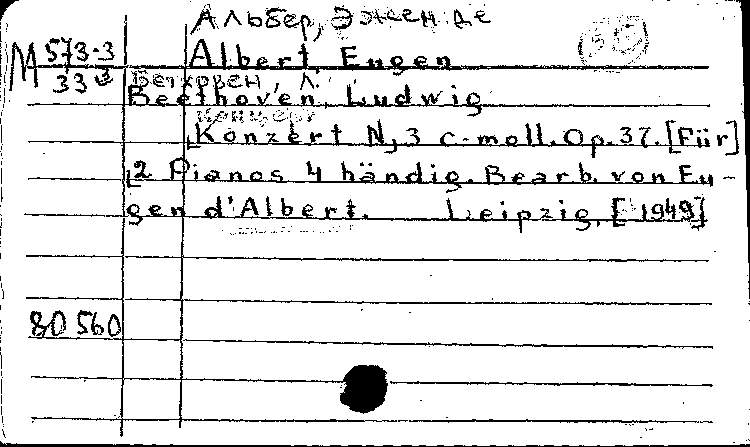 Альбер, Эжен де
М 573-3
Albert, Eugen
333
Бетховен, Л.
Beethoven, Ludwig
Концерт
Konzert N, 3 c-moll. Op. 37. [Für]
2 Pianos 4 händig. Bearb. von Eu-
gen d'Albert. Leipzig, [1949]
80560